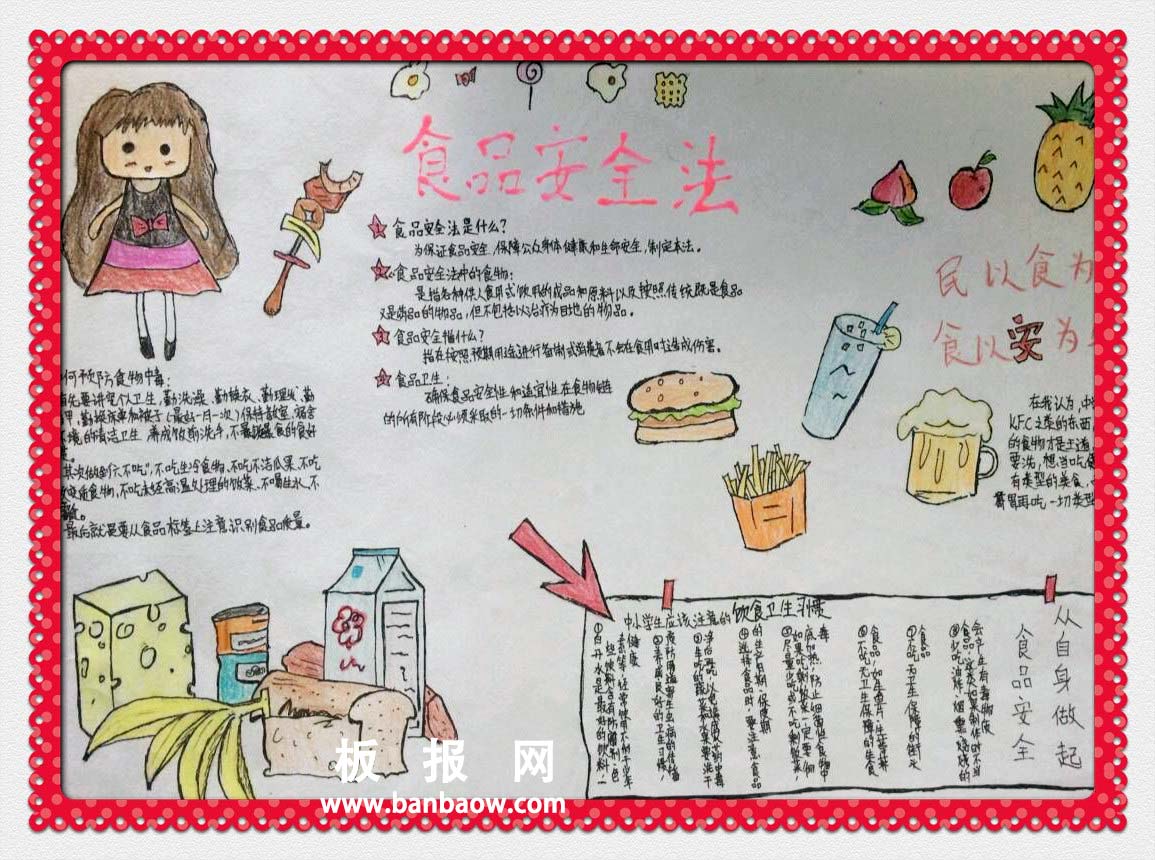 食品安全法
食品安全法是什么?
为保证食品安全,保障公众身体健康和生命安全,制定本法。
食品安全法中的食物:
是指各种供人食用或饮用的成品和原料以及按照传统既是食品
又是药品的物品,但不包括以治疗为目地的物品。
食品安全指什么?
指在按照预期用途进行备制或消费者不会在食用时造成伤害。
食品卫生:
确保食品安全性和适宜性在食物链
的所有阶段必须采取的一切条件和措施
民以食为
食以安为
何预防食物中毒:
首先要讲究个人卫生,勤洗澡、勤换衣、勤理发、勤
甲,勤换洗床单和被子(最好一月一次)保持教室、宿舍
环境的清洁卫生
其次做到六不吃",不吃生冷食物、不吃不洁瓜果、不吃
质食物,不吃未经高温处理的饭菜、不喝生水、不
最后就是要从食品标签上注意识别食品质量。
在我认为,中
KFC之类的东西
的食物才是王道
要洗,想当吃
有类型的美食,
再吃一切类型
中小学生应该注意的饮食卫生习惯
从自身做起
食品安全
会产生有毒物质
食品,这类如果制作时不当
⑧少吃油炸、烟熏、烧烤的
食品
⑦不吃无卫生保障的街头
食品,如生鱼片、生荸荠
⑥不吃无卫生保障的生食
毒
底加热,防止细菌性食物中
如果吃剩饭菜一定要彻
⑤尽量少吃或不吃剩饭菜
的生产日期、保质期
④选择食品时,要注意食品
净后再吃,以免造成农药中毒
③生吃的蔬菜和水果要洗干
②养成良好的卫生习惯
健康
①白开水是最好的饮料,一
板报网
www.banbaow.com